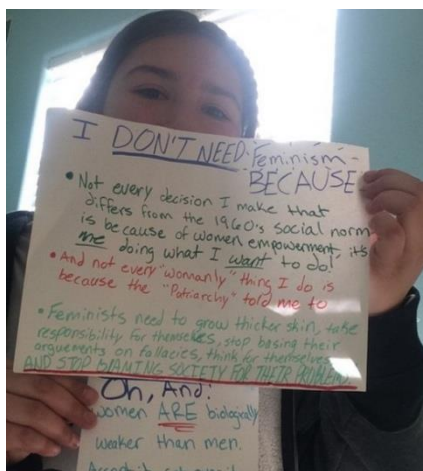 I DON'T NEED Feminism
BECAUSE
• Not every decision I make that
differs from the 1960's social norm
is because of women empowerment, it's
me doing what I want to do!
• And not every "womanly" thing I do is
because the "Patriarchy" told me to
• Feminists need to grow thicker skin, take
responsibility for themselves, stop basing their
arguements on fallacies, think for themselves
AND STOP BLAMING SOCIETY FOR THEIR PROBLEMS
Oh, And:
women ARE biologically
weaker than men.